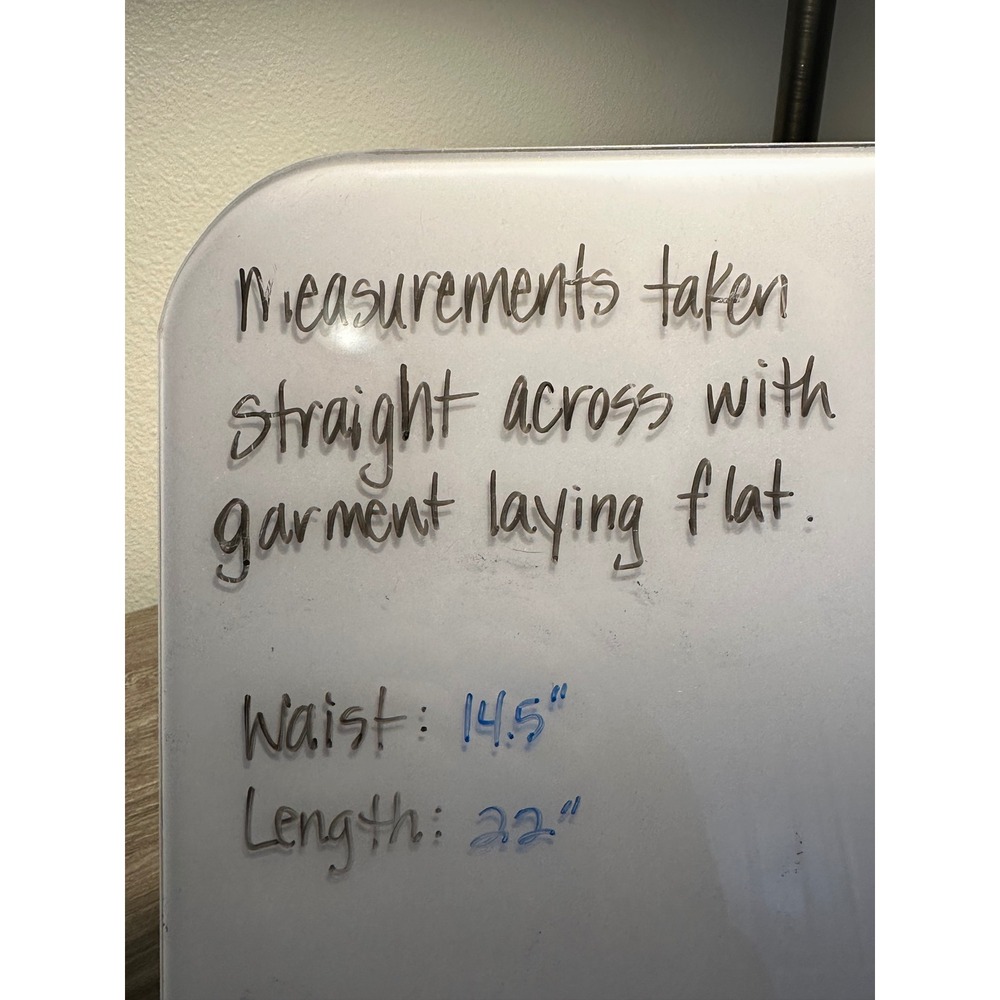 Measurements taken
straight across with
garment laying flat.
Waist: 14.5"
Length: 22"